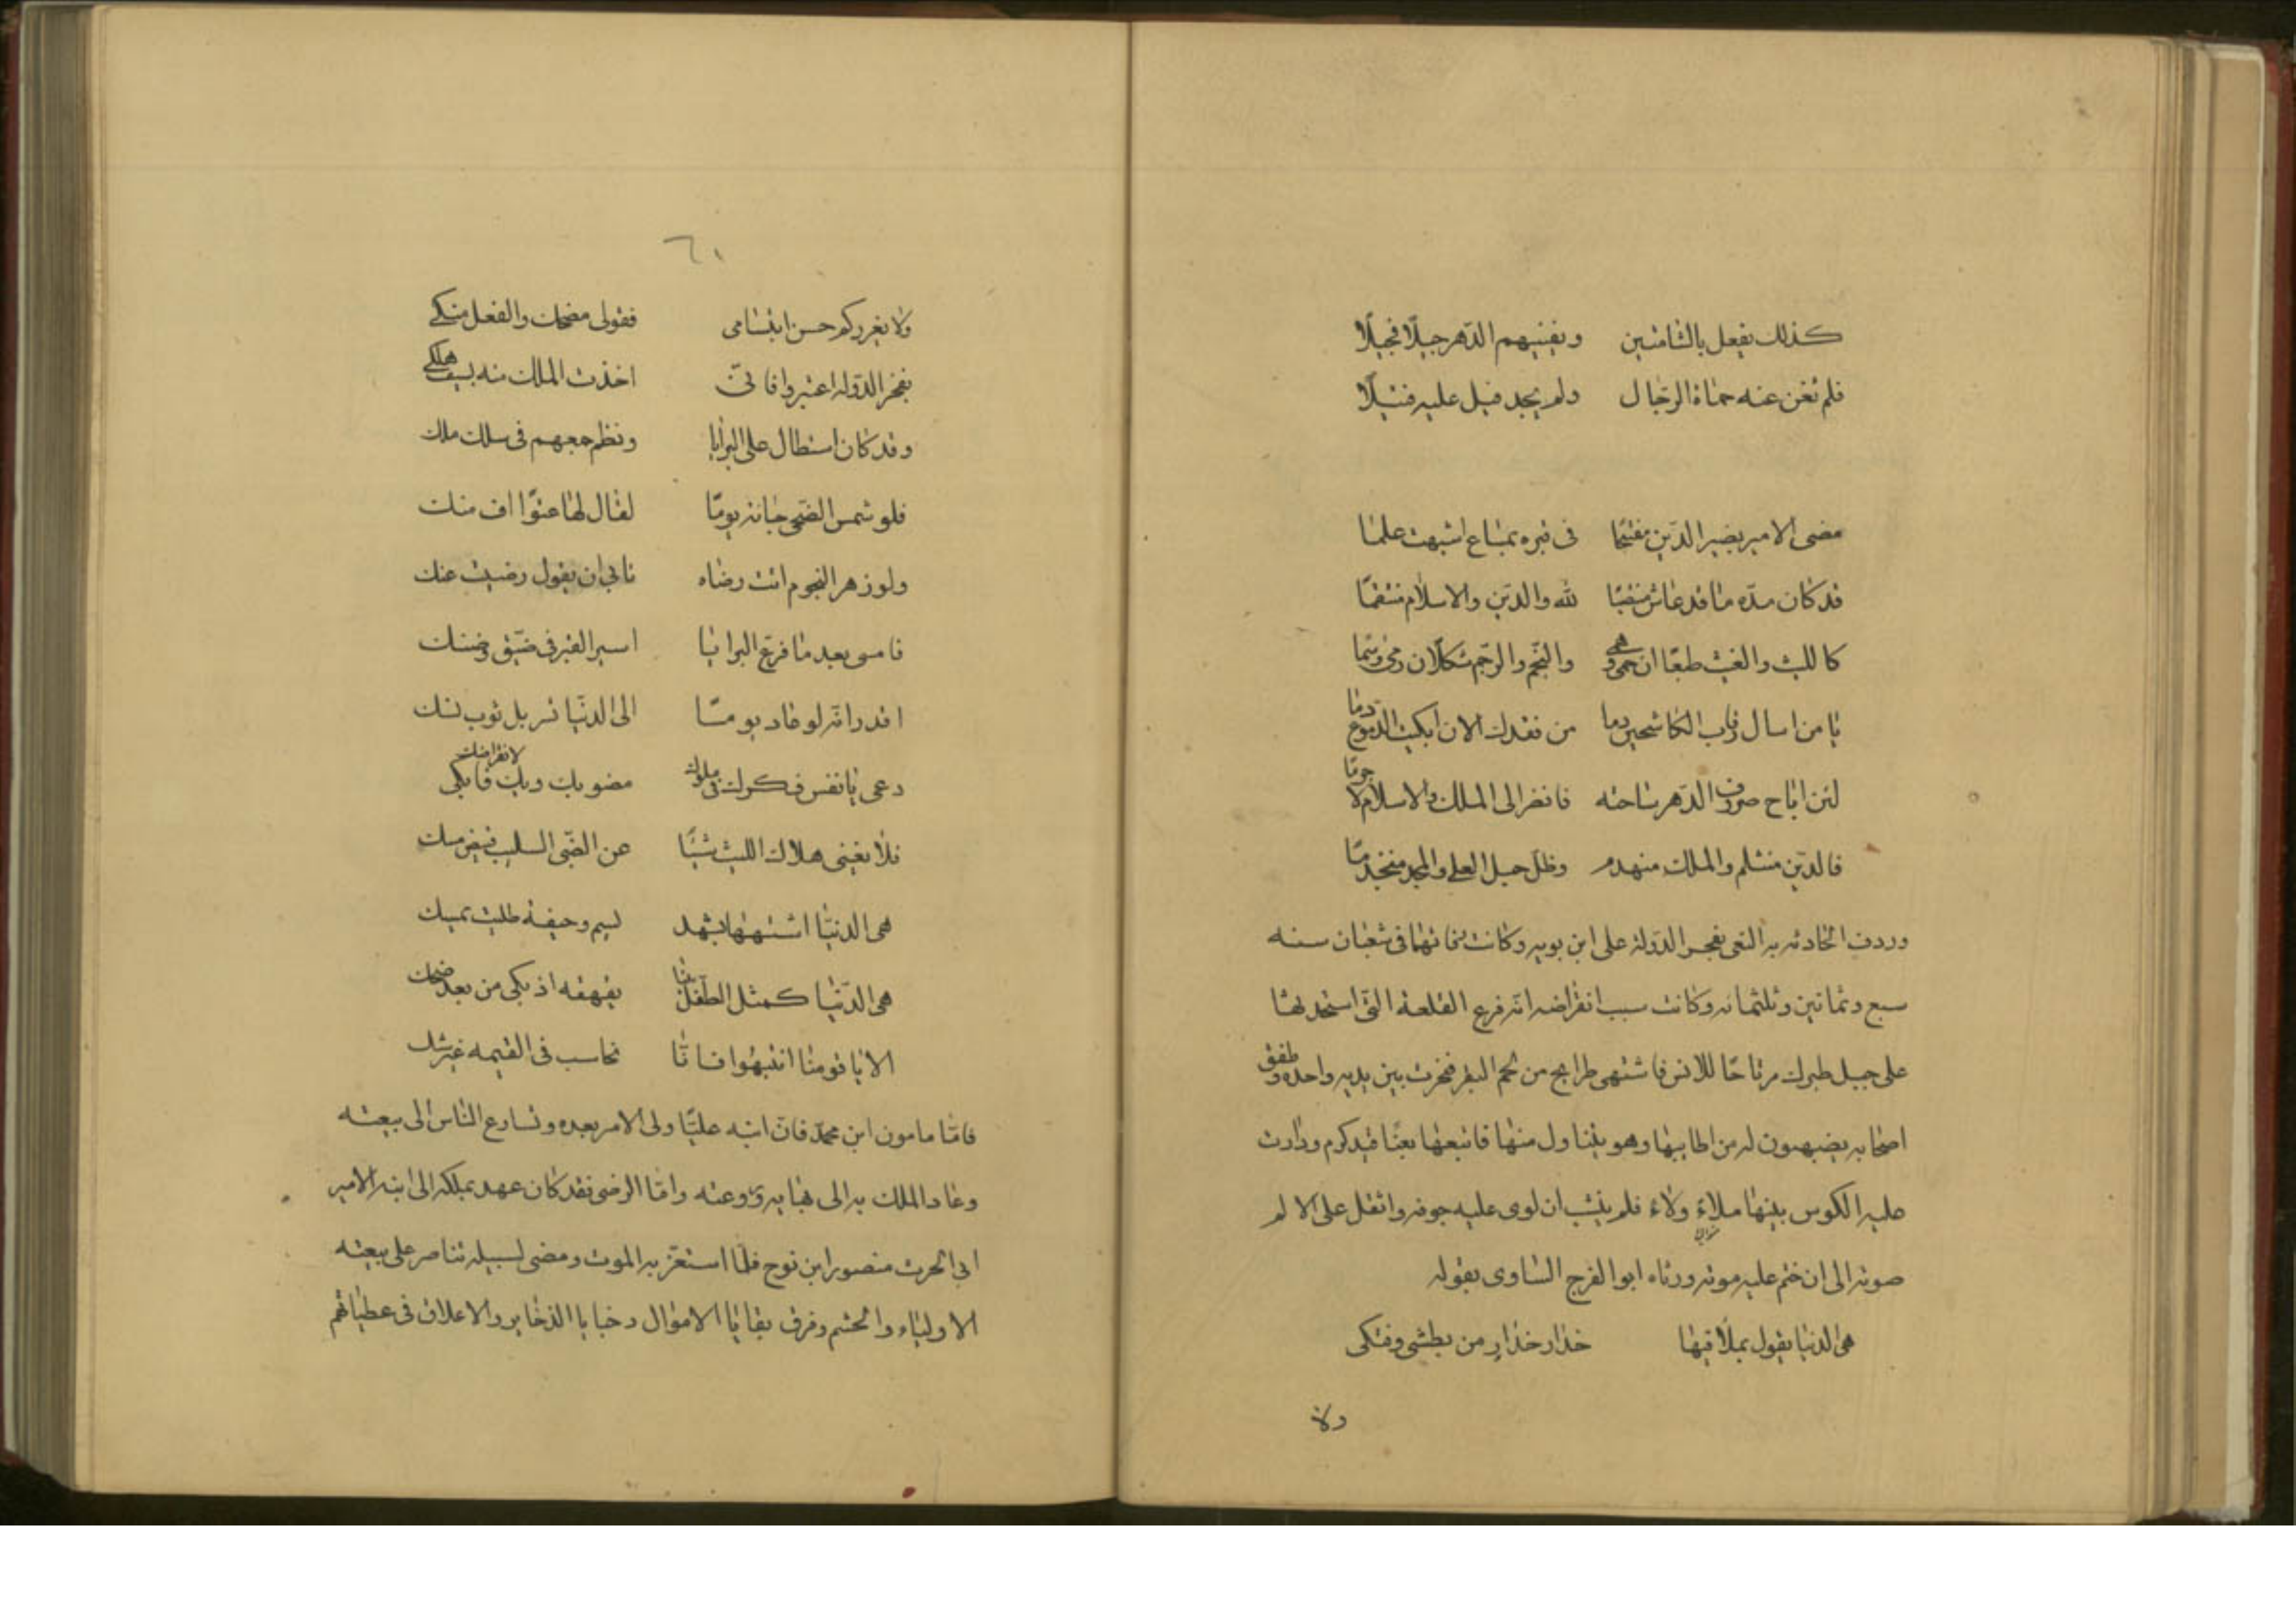 كذلك يفعل بالشامتين ويفنيهم الدّهر جيلًا فجيلًا
فلم تغن عنه حماة الرجال ولم يجد فيل عليه فتيلًا
مضى الامير نصير الدّين مفتتحًا فى قبره
قد كان مدّه ما قد عاش لله والدّين والاسلام منتقمًا
كالليث والغيث طبعًا ان حمى وهمى والنجم والرّجم شكلًا ان رمى وسما
يا من اسال رقاب الكاشحين دما من فقدك الان ابكيت الدّموع دما
لئن اباح صروف الدّهر ساحته فانظر الى الملك والاسلام لا جرمًا
فالدّين منثلم والملك منهدم وظلّ حبل العلى والمجد منجذمًا
وردف الحادثه به النعى بفجر الدّولة على ابن بويه وكانت فى شعبان سنه
سبع وثمانين وثلثمائه وكانت سبب انقراضه انّه فرغ القلعة التى استحدثها
على جبل طبرك مرتاحًا للانس فاشتهى طرايح من لحم البقر فنحرت بين يديه واحده وطفق
اصحابه يضهبون له من اطايبها وهو يتناول منها فاتبعها كرم ودارت
عليه الكوس بينها ملاء ولاء فلم ينشب ان لوى عليه جوفه واتصل على الالم
صوته الى ان ختم عليه موته ورثاه ابو الفرج الساوى بقوله
هى الدنيا تقول بملا فيها حذار حذار من بطشى وفتكى
ولا
٦١
ولا يغرركم حسن ابتسامى فقولى مضحك والفعل مبكى
بفخر الدّوله اعتبروا فانّى اخذت الملك منه بسيف هلك
وقد كان استطال على البرايا ونظم جمعهم فى سلك ملك
فلو شمس الضحى جاءته يومًا لقال لها عتوًّا اف منك
ولو زهر النجوم اتت رضاه تابى ان يقول رضيت عنك
فامسى بعد ما فرغ البرايا اسير القبر فى ضيق وضنك
اقدر انّه لو عاد يومًا الى الدنّيا تسربل ثوب نسك
دعى يا نفس فكرك فى ملوك مضوا بك ويك فابكى لانقراضك
فلا يغنى هلاك الليث شيئًا عن الظبى السليب
هى الدنيا اشبهها بشهد يسم وجيفة طليت بمسك
هى الدّنيا كمثل الطّفل بينا يقهقه اذ بكى من بعد ضحك
الا يا قومنا انتبهوا فانّا نحاسب فى القيمه غير شك
فامّا مامون ابن محمد فانّ ابنه عليًّا ولى الامر بعده وتسارع الناس الى بيعته
وعاد الملك به الى وامّا الرضى فقد كان عهد بملكه الى ابنه الامير
ابى الحرث منصور ابن نوح فلمّا استعزّ به الموت ومضى لسبيله تناصر على بيعته
الاولياء والحشم وفرق بقايا الاموال وخبايا الذخاير والاعلاق فى عطياتهم